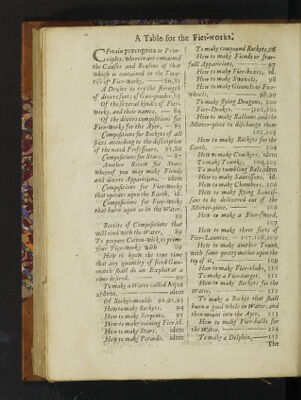 A Table for the Fier-works.
CErtain præcognita or Prin-
ciples, wherein are contained
the Causes and Reasons of that
which is contained in the Trea-
tise of Fier-works, 80,81
A Device to try the strength
of divers sorts of Gun-powder, 83
Of the several kindes of Fier-
works, and their names, 84
Of the divers compositions for
Fier-works for the Ayer, 85
Compositions for Rockets of all
sizes according to the description
of the
Compositions for Stars, 87
Another Receit for Stars
whereof you may make Fiends
and divers Apparitions, idem
Compositions for Fier-works
that operate upon the Earth, id.
Compositions for Fier-works
that burn upon or in the Water,
88
Receits of Compositions that
will feed with the Water, 89
To prepare Cotton-wick to prime
your Fier-works with 89
How to know the true time
that any quantity of fired Gun-
match shall do an Exploit at a
time desired, 90
To make a Water called Aqua
ardens, idem
Of Rocket-moulds 91,92,93
How to make Rockets, 94
How to make Serpents, 95
How to make raining Fier, id.
How to make Stars, idem
How to make Petards, idem
To make compound Rockets, 96
How to make Fiends or fear-
full Apparitions, 97
How to make Fier-boxes, id.
How to make Swevels, 98
How to make Girondels or Fier-
wheels, 98,99
To make flying Dragons, 100
Fier-Drakes, 101,102
How to make Balloons and the
Morter-piece to discharge them
102,103
How to make Rockets for the
Earth, 104
How to make Crackers, idem
To make Trunks, 104,105
To make tumbling Balls, idem
How to make Saucissons, id.
How to make Chambers, 106
How to make flying Saucis-
sons to be delivered out of the
Morter-piece, 106
How to make a Fier-sword,
107
How to make three sorts of
Fier-Launces, 107,108,109
How to make another Trunk
with some pretty motion upon the
top of it, 109
How to make Fier-clubs, 110
To make a Fier-target, 111
How to make Rockets for the
Water, 112
To make a Rocket that shall
burn a good while in Water, and
then mount into the Ayer, 113
How to make Fier-balls for
the Water, 114
To make a Dolphin, 115
The